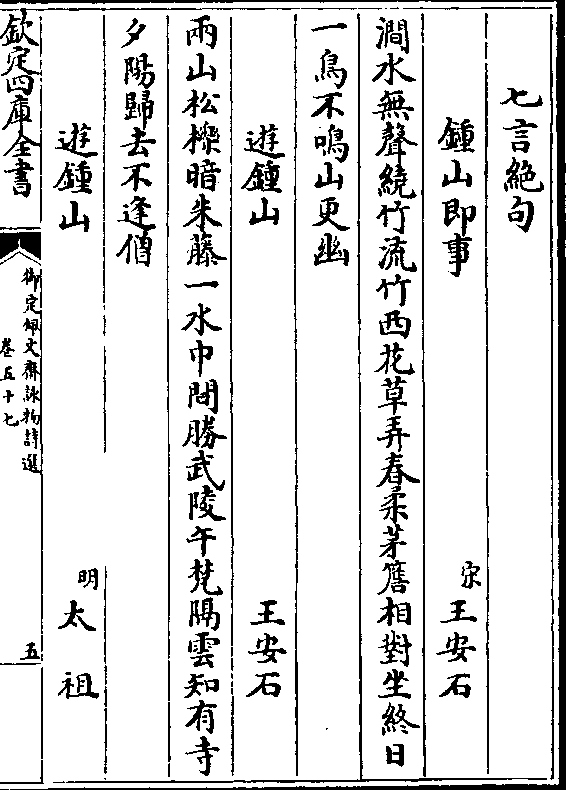 七言絶句
鍾山即事
宋王安石
澗水無聲繞竹流竹西花草弄春柔茅簷相對坐終日
一鳥不鳴山更幽
遊鍾山
王安石
兩山松櫟暗朱藤一水中間勝武陵午梵隔雲知有寺
夕陽歸去不逢僧
遊鍾山
明太祖
欽定四庫全書
御定佩文齋詠物詩選
卷五十七
五